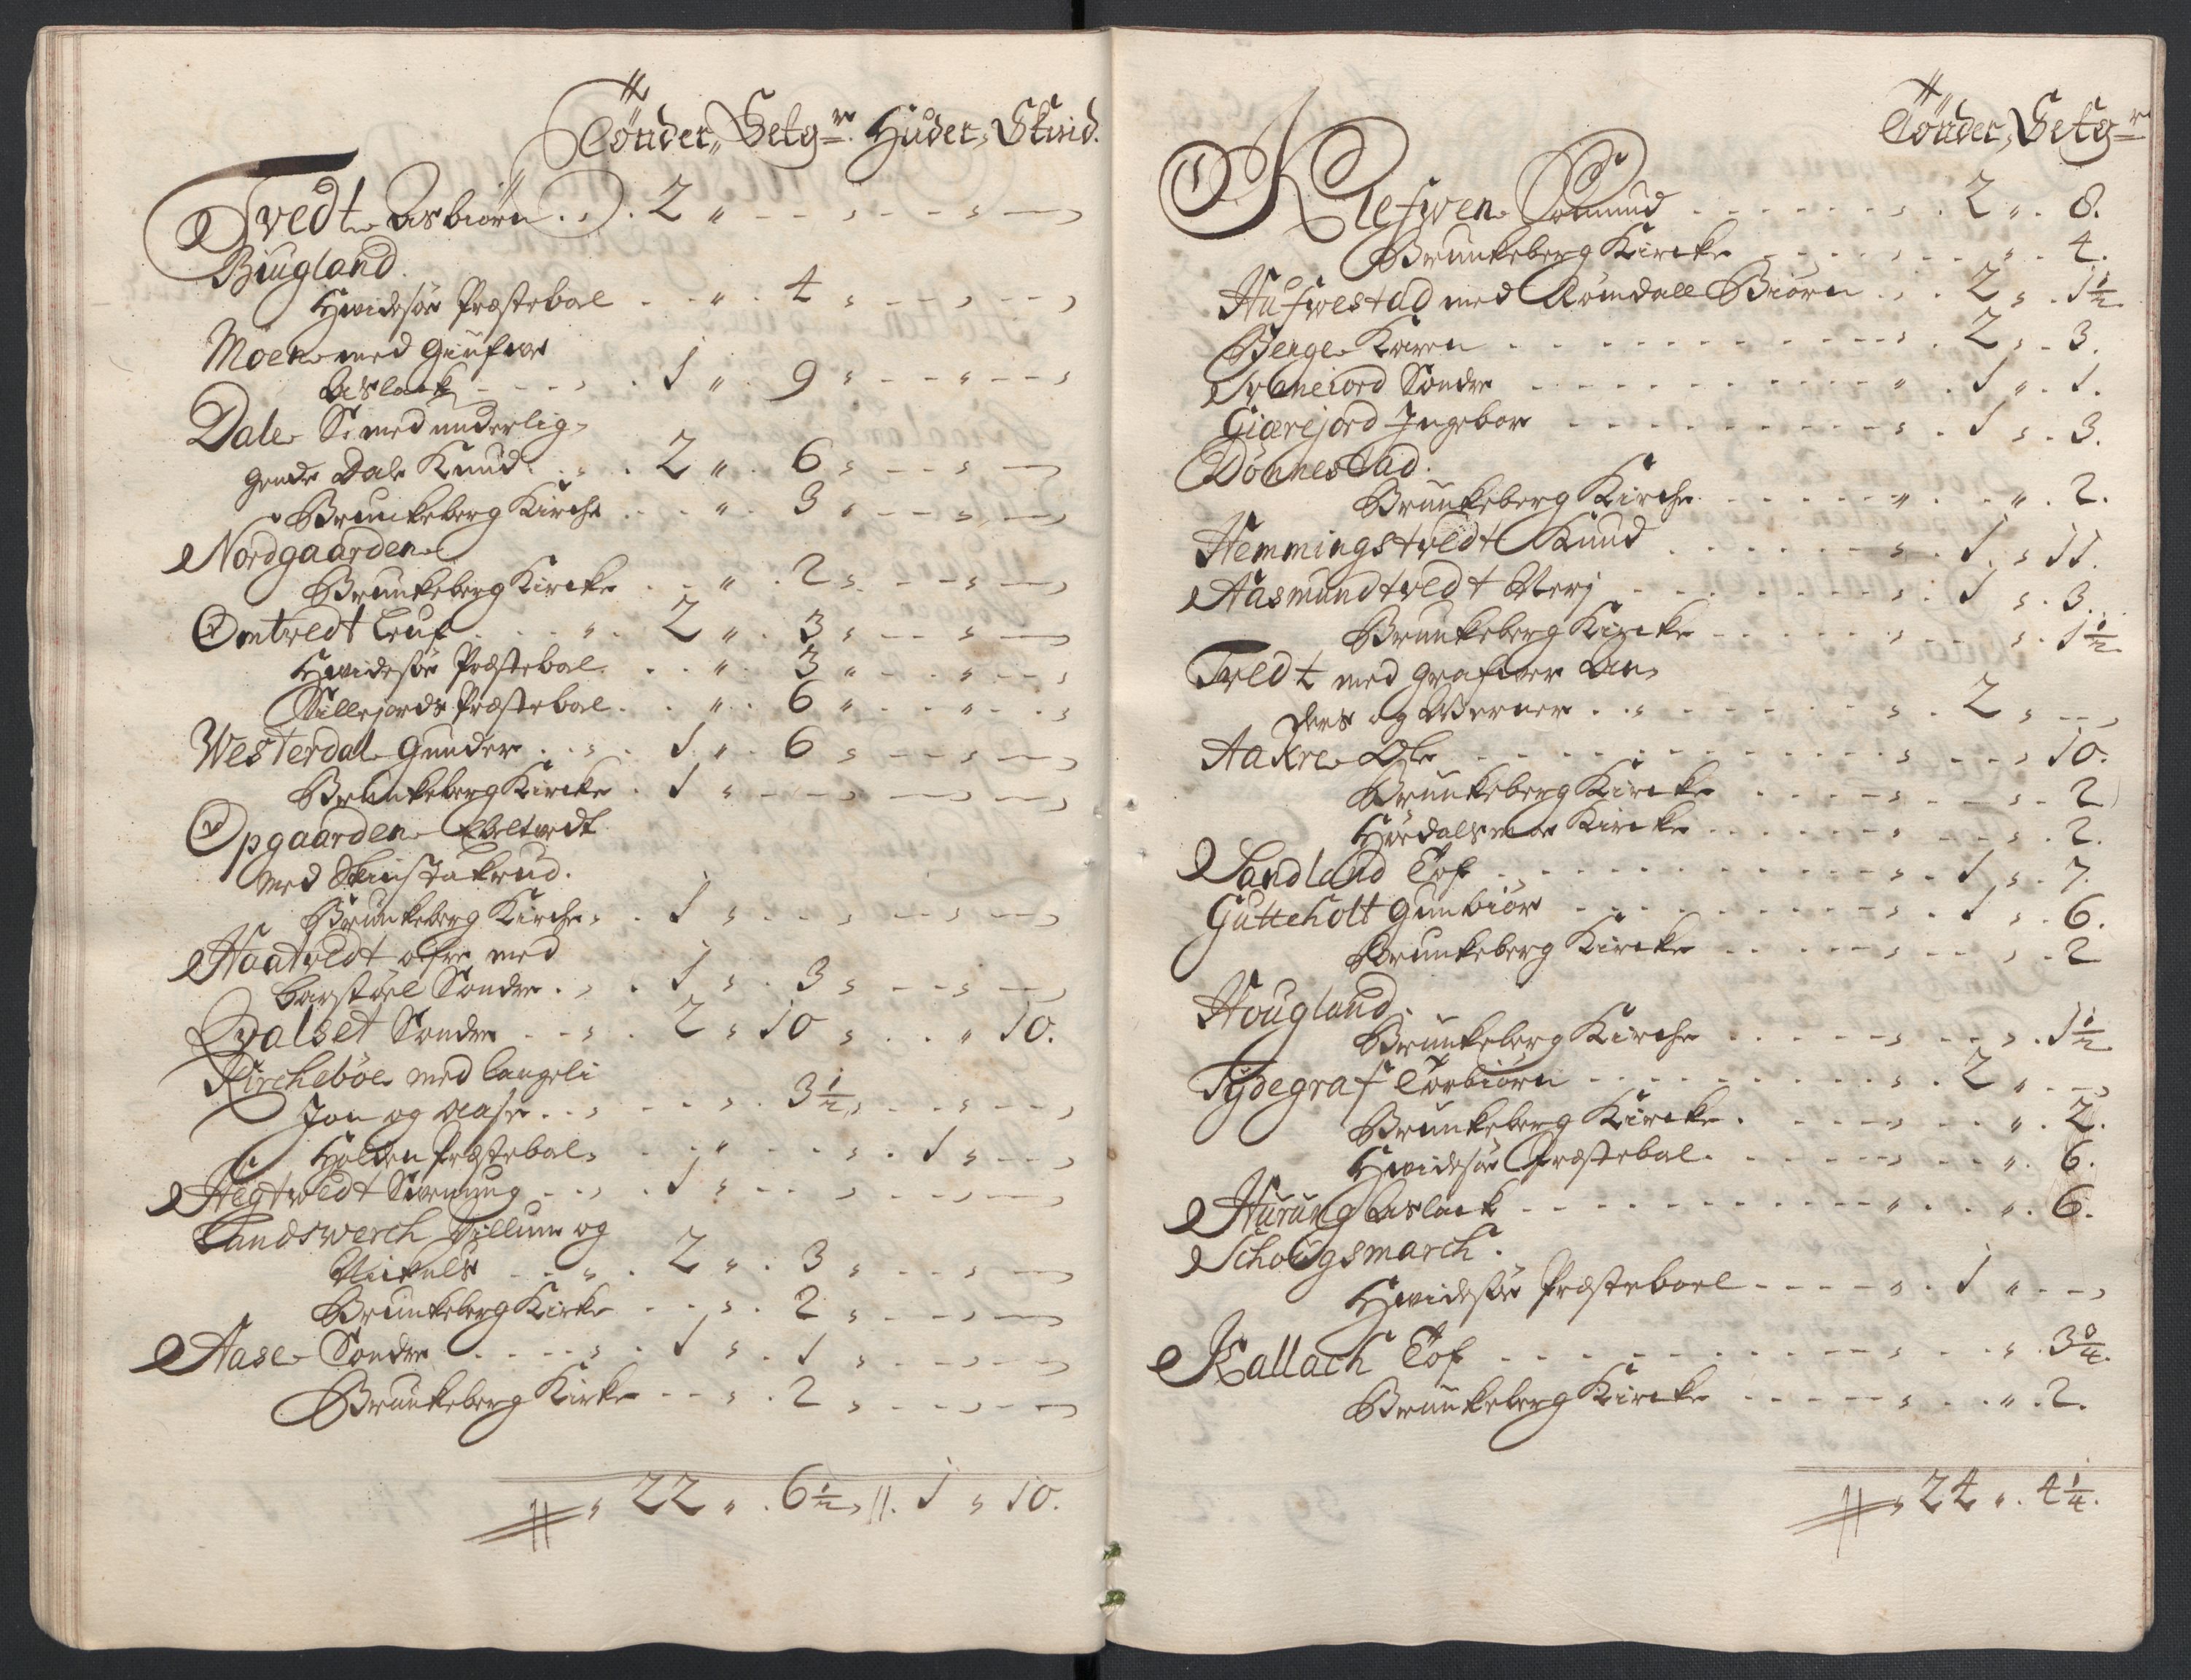 Tønder, Setgr. Huder, Skind.
Tvedt Asbiørn . . . 2 " - - , - - , —
Biugland.
Hvidesøe Præstebol - - " . 4 , - - , - - ,
Moen med
Aslack - - - , . 1 " . 9 , - - " - - ,
Dale S. med underlig-
gende Dale Knud . , . 2 " . 6 , - - , —
Brunckeberg Kirche . . . " . 3 " - - , —
Nordgaarden
Brunkeberg Kircke . . " . 2 , - - , —
Omtvedt Leuf . . . " . 2 " . 3 , - - , —
Hvidesøe Præstebol . . . " . 3 " - - " - - ,
Sillejords Præstebol . . " . 6 " . . " - . ,
Westerdal Gunder . . , . 1 " . 6 , - - , —
Brunkeberg Kircke . 1 , - - , — —
Opgaarden
med
Brunkeberg Kirche , . 1 , . . , - - , —
Haatvedt øfre med
Barstøel Sondre . , . 1 , . 3 , - - , —
Qvalset Sondre - - , . 2 , 10 , . . " 10.
Kirchebøe med Langeli
Jon og Aase . . , - - , . 3 1/2 , - - , - - ,
Holden Præstebol , - - " - - - , . 1 , - - ,
Hegtvedt - - , . 1 , - - , - - , —
Landsverch Villum og
- - " . 2 " . 3 , - - , —
Brunkeberg Kirke - - , . 2 , - - , —
Aase Sondre . - - - , . 1 , . 1 , - - , —
Brunkeberg Kirke - - , . 2 , - - , —
" 22 " . 6 1/2 , 11. 1 , 10.
Tønder, Setgr
Klefwen . . . - - - , . 2 " . 8.
Brunkeberg Kircke - - - - , - - " . 4.
Hufwestad med Rømdall Biørn . , . 2 , . 1 1/2
Berge Karen - - - - - - , . 2 , . 3.
Sondre - - - - - - " . 1 " . 1.
Giærejord Ingebor - - - - - - , . 1 , . 3.
Dønnestad.
Brunkeberg Kirche . - - - - " . . " . 2.
Hemmingstvedt Knud . . - - - , . 1 , 11.
Aasmundtvedt - - - - , . 1 , . 3.
Brunkeberg Kircke - - - - , - - , . 1 1/2
Tvedt med Grafver An-
ders og Werner . . " - - - - , . 2 , - - ,
Aakre Ole - - - - - - , - - , 10.
Brunkeberg Kircke - - - - , - - , . 2
Kircke . . . - - , - - , . 2.
Sandland Tof - - - - - - , . 1 , . 7.
Gutteholt Gunbiør - - - - - , . 1 , . 6.
Brunkeberg Kircke - - - - , - - , . 2
Hougland.
Brunkeberg Kirche . - - - , - - , . 1 1/2
Tydegraf Torbiørn - - - - - , . 2 " - - ,
Brunkeberg Kircke . - - - , - - " . 2.
Hvidesøe Præstebol . - - - , - - " . 6.
Hurung Aslack - - - - - - " . . " . 6.
Schougsmarch.
Hvidesøe Præsteborl - - - - " . 1 " - - ,
Kallach Tof - - - - - - , . . " . 3 3/4.
Brunkeberg Kircke - - - - , . . " . 2.
, 24 " . 4 1/4.